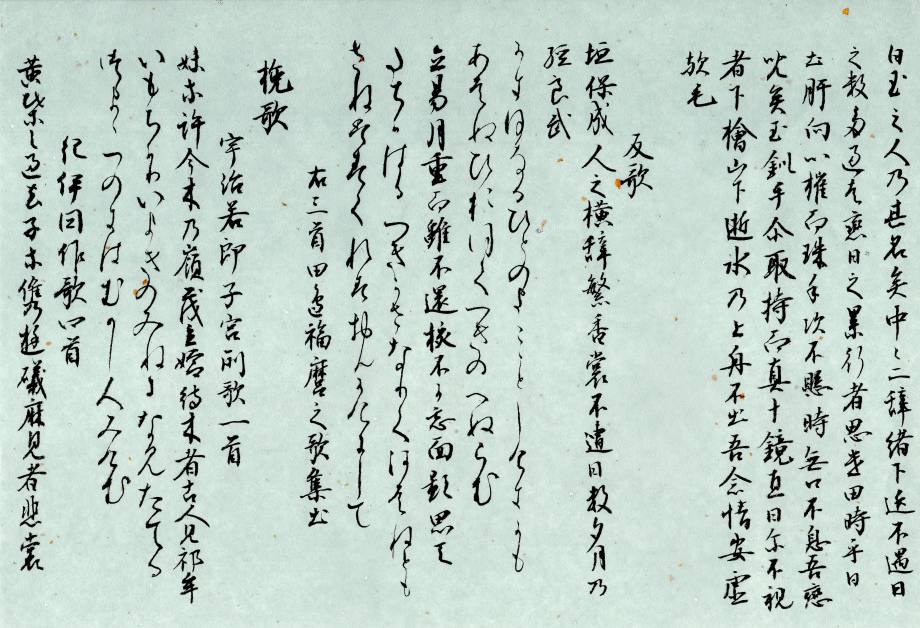 白玉之人乃其名矣中々二辞緒下延不遇日
之數多過者戀日之累行者思遣田時乎白
土肝向心摧而珠手次不懸時無口不息吾戀
兒矣玉釧手尓取持而真十鏡直目尓不視
者下檜山下逝水乃上丹不出吾念情安虚
歟毛
反歌
垣保成人之横辞繁香裳不遭日數多月乃
經良武
かきほなるひとのよこことしけきかも
あはぬひおほくつきのへぬらむ
立易月重而雖不遇核不所忘面影思天
たちかはるつきかさなりてあはねとも
さねわすられすおもかけにして
右三首田邊福麿之歌集出
挽歌
宇治若郎子宮所歌一首
妹等許今木乃嶺茂立嬬待木者古人見祁牟
いもらかりいまきのみねになみたてる
つままつのきはむかし人みけむ
紀伊國作歌四首
黄葉之過去子等携遊礒麻見者悲裳